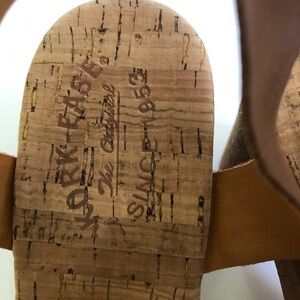 KORK-EASE
The Original
SINCE 1953